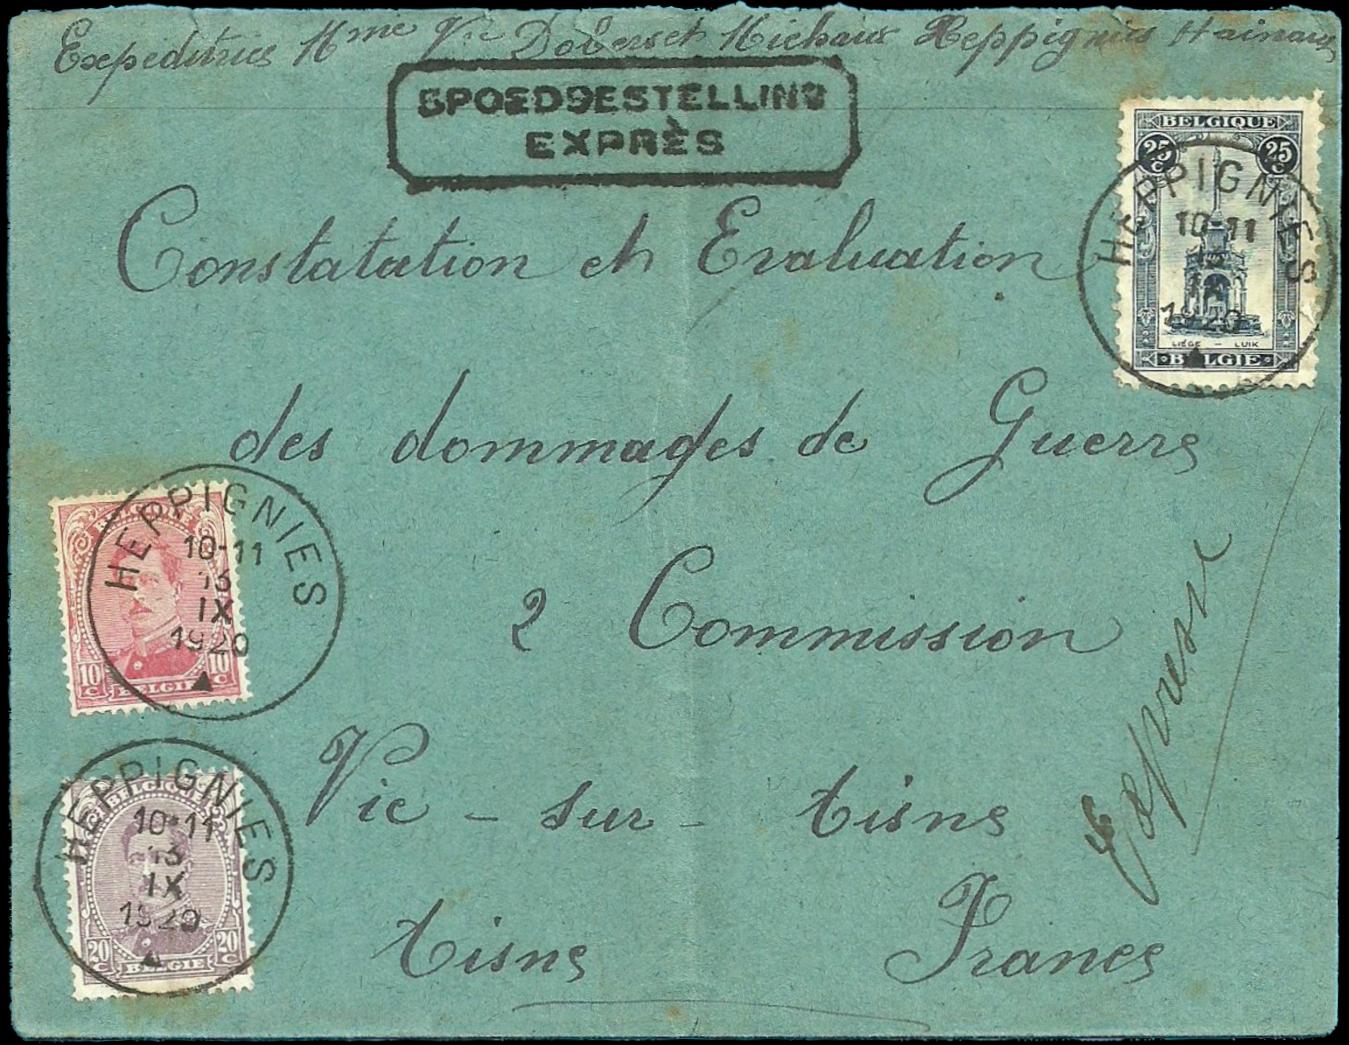 Expéditrice Mme Vve Doberset Michaux Heppignies Hainaut
SPOEDBESTELLING
EXPRÈS
BELGIQUE
25 C 25 C
LIÉGE - LUIK
BELGIE
HEPPIGNIES
10-11
IX
1920
Constatation et Evaluation
des dommages de Guerre
2 Commission
Vic - sur - Aisne
Aisne France
Expresse
HEPPIGNIES
10-11
13
IX
1920
10 C 10 C
BELGIE
HEPPIGNIES
BELGIQUE
10-11
13
IX
1920
20 C 20 C
BELGIE